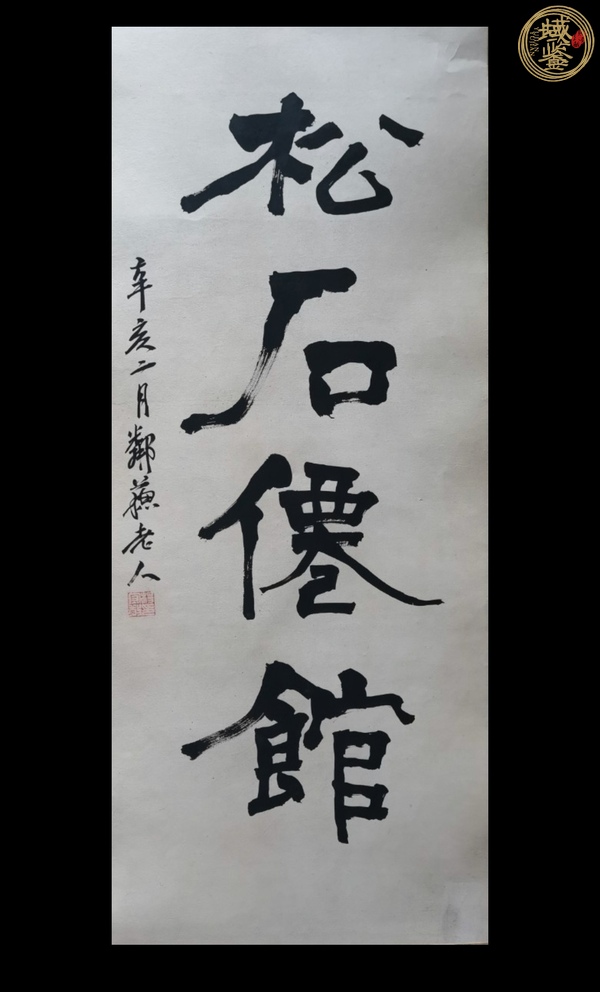 松石僊館
辛亥二月鄰蘇老人
域鉴